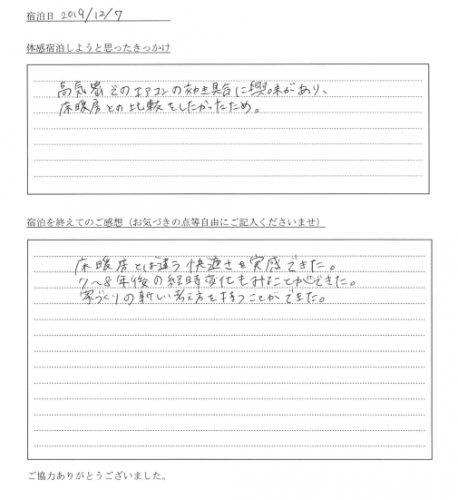 宿泊日 2019/12/7
体感宿泊しようと思ったきっかけ
高気密でのエアコンの効き具合に興味があり、
床暖房との比較をしたかったため。
宿泊を終えてのご感想（お気づきの点等自由にご記入くださいませ）
床暖房とは違う快適さを実感できた。
7〜8年後の経時変化もみることができた。
家づくりの新しい考え方を持つことができた。
ご協力ありがとうございました。